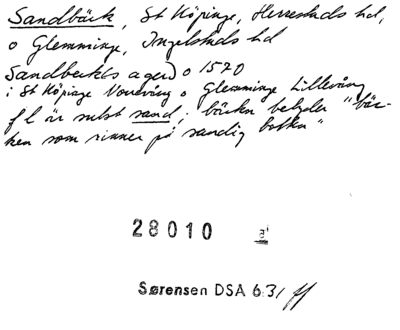 Sandbäck, St Köpinge, Herrestads hd,
o Glemminge, Ingelstads hd
Sandbeckts agerd o 1570
i St Köpinge Vorevång o Glemminge Lillevång
f l är subst sand; bäcken betyder "bäc-
ken som rinner på sandig botten"
28010 a
Sørensen DSA 6:31 ff